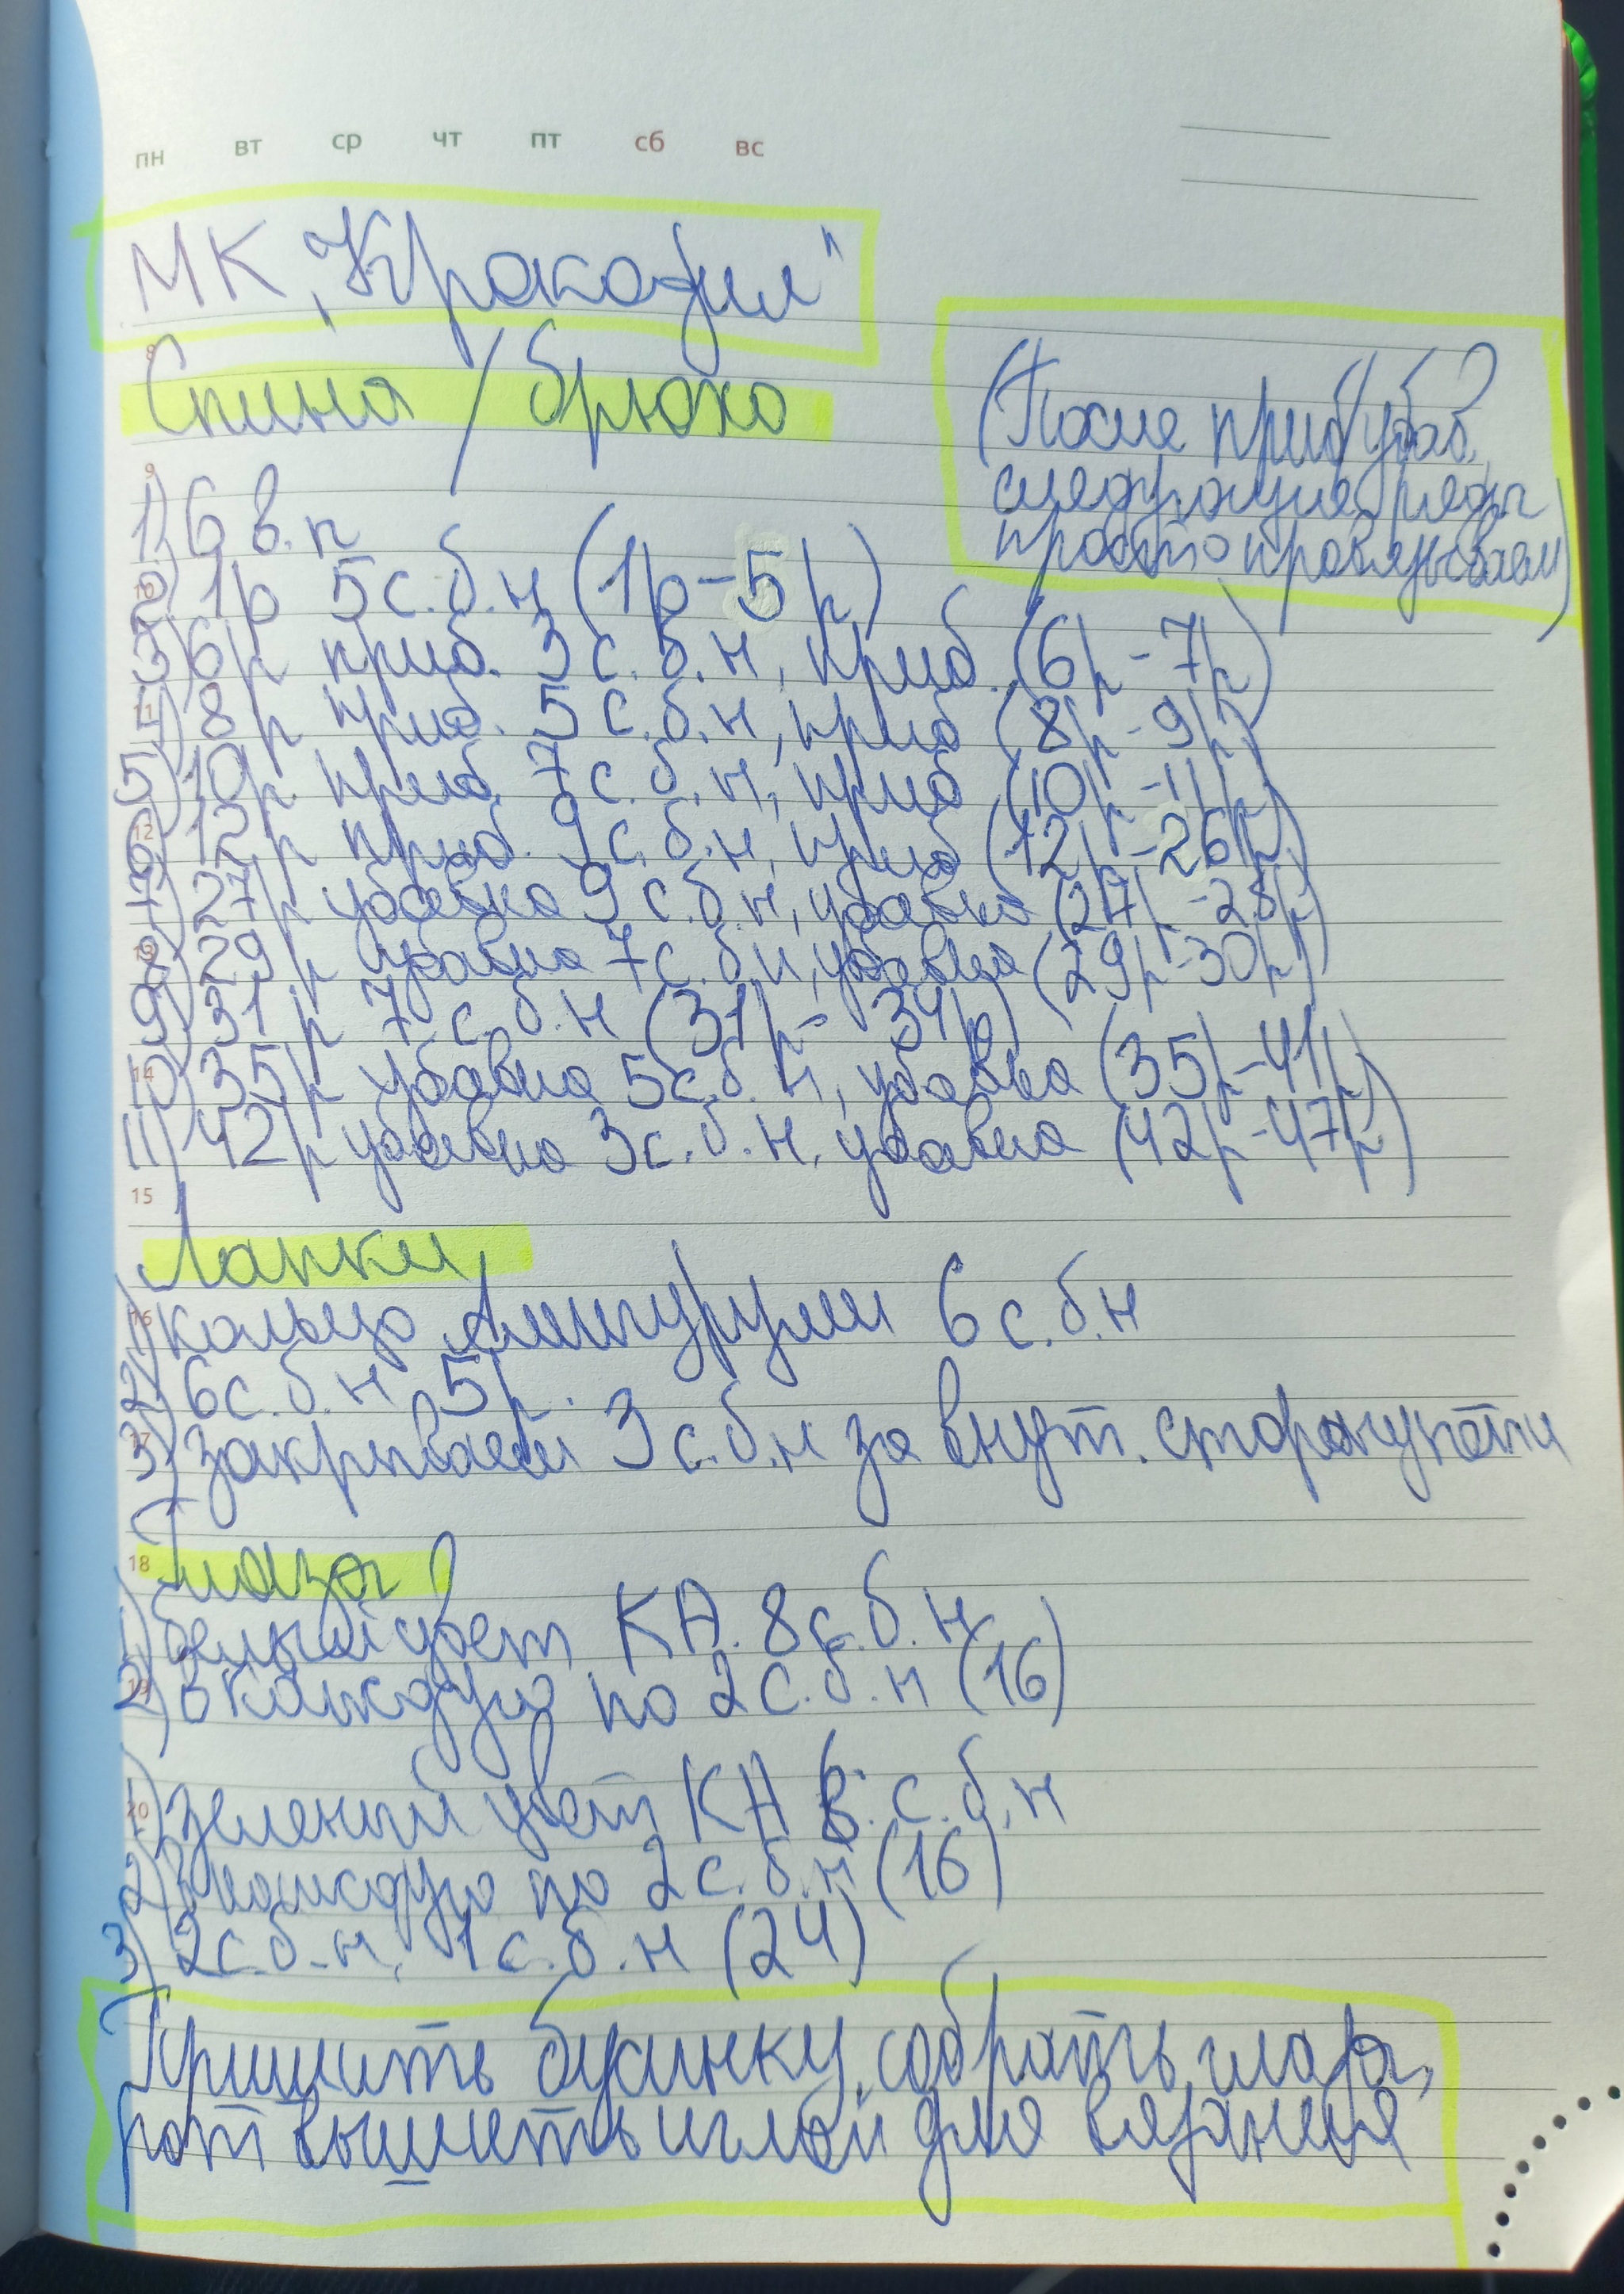 пн вт ср чт пт сб вс
МК „Крокодил"
8
Спина / брюхо
(После приб/убав.
следующие ряды
просто провязываем)
9
1) 6 в.п
10
2) 1р 5 с.б.н (1р-5р)
3) 6р приб. 3 с.б.н, приб. (6р-7р)
11
4) 8р приб. 5 с.б.н, приб (8р-9р)
5) 10р приб. 7 с.б.н, приб (10р-11р)
12
6) 12р приб. 9 с.б.н, приб (12р-26р)
7) 27р убавка 9 с.б.н, убавка (27р-28р)
13
8) 29р убавка 7 с.б.н, убавка (29р-30р)
9) 31р 7 с.б.н (31р-34р)
14
10) 35р убавка 5 с.б.н, убавка (35р-41р)
11) 42р убавка 3 с.б.н, убавка (42р-47р)
15
Лапки
16
1) кольцо Амигуруми 6 с.б.н
2) 6 с.б.н 5р.
17
3) закрываем 3 с.б.н за внут. сторону петли
18
Глаза
1) белый цвет КА. 8 с.б.н
19
2) в каждую по 2 с.б.н (16)
20
1) зеленый цвет КА 8 с.б.н
2) в каждую по 2 с.б.н (16)
3) 2 с.б.н, 1 с.б.н (24)
Пришить бусинку, собрать глаза,
рот вышить иглой для вязания